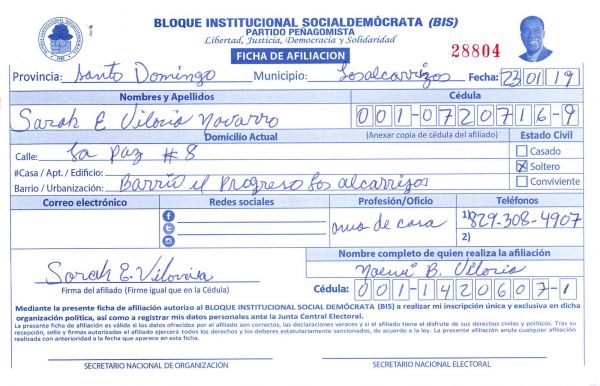 BLOQUE INSTITUCIONAL SOCIALDEMÓCRATA (BIS)
PARTIDO PEÑAGOMISTA
Libertad, Justicia, Democracia y Solidaridad
FICHA DE AFILIACION
28804
Provincia: Santo Domingo Municipio: Los alcarrizos Fecha: 23 01 19
Nombres y Apellidos Cédula
Sarah E Viloria Navarro 001-0720716-9
Domicilio Actual (Anexar copia de cédula del afiliado) Estado Civil
Calle: La Paz # 8 Casado
#Casa / Apt. / Edificio: X Soltero
Barrio / Urbanización: Barrio el Progreso Los alcarrizos Conviviente
Correo electrónico Redes sociales Profesión/Oficio Teléfonos
ama de casa 1) 829-308-4907
2)
Nombre completo de quien realiza la afiliación
Sarah E. Viloria B. Viloria
Firma del afiliado (Firme igual que en la Cédula) Cédula: 001-1420607-1
Mediante la presente ficha de afiliación autorizo al BLOQUE INSTITUCIONAL SOCIAL DEMÓCRATA (BIS) a realizar mi inscripción única y exclusiva en dicha
organización política, así como a registrar mis datos personales ante la Junta Central Electoral.
La presente ficha de afiliación es válida si los datos ofrecidos por el afiliado son correctos, las declaraciones veraces y si el afiliado tiene el disfrute de sus derechos civiles y políticos. Tras su
recepción, sello y firmas autorizadas el afiliado ejercerá todos los derechos y los deberes estatutariamente sancionados, de acuerdo a la ley. La presente afiliación anula cualquier afiliación
realizada con anterioridad a la fecha que aparece en esta ficha.
SECRETARIO NACIONAL DE ORGANIZACIÓN SECRETARIO NACIONAL ELECTORAL